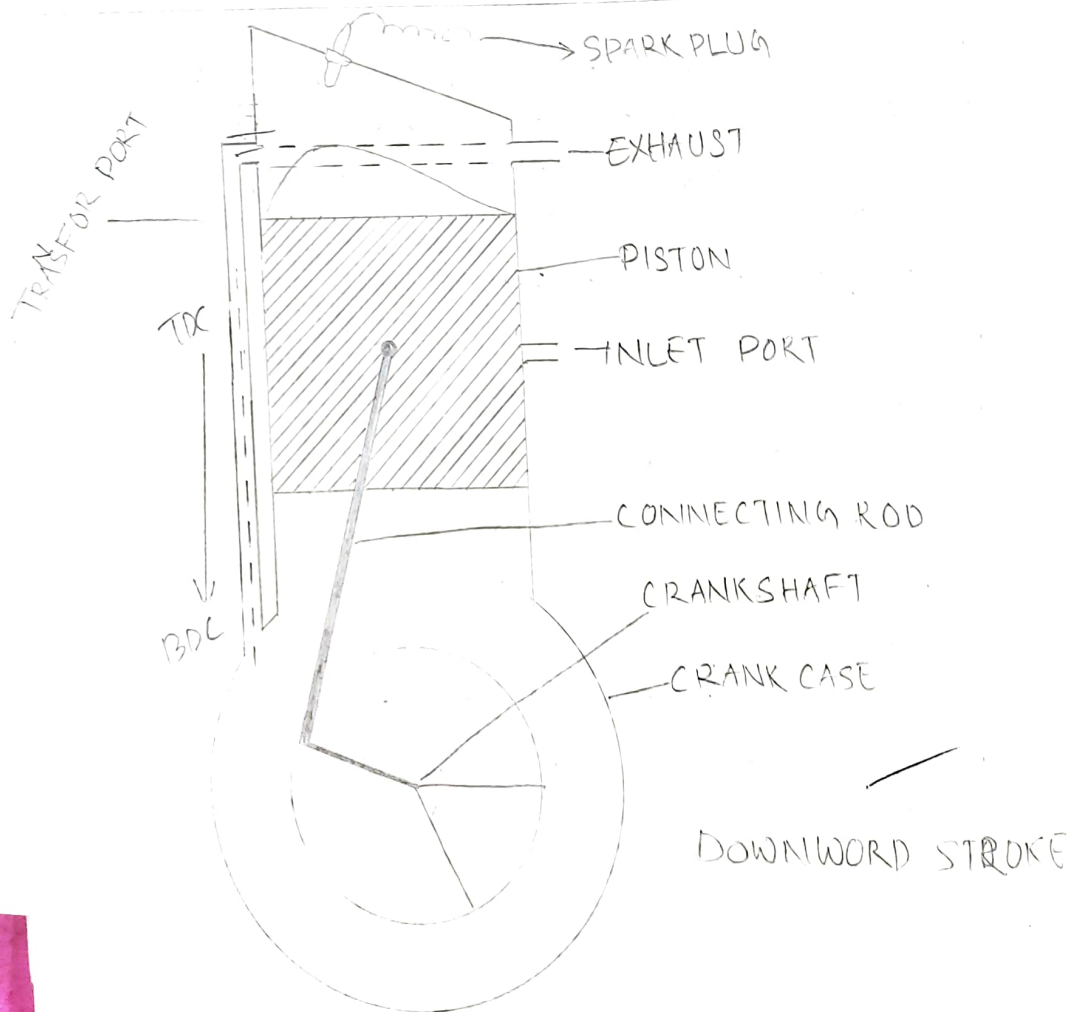 SPARK PLUG
EXHAUST
TRANSFOR PORT
PISTON
TDC
INLET PORT
CONNECTING ROD
CRANKSHAFT
BDC
CRANK CASE
DOWNWORD STROKE